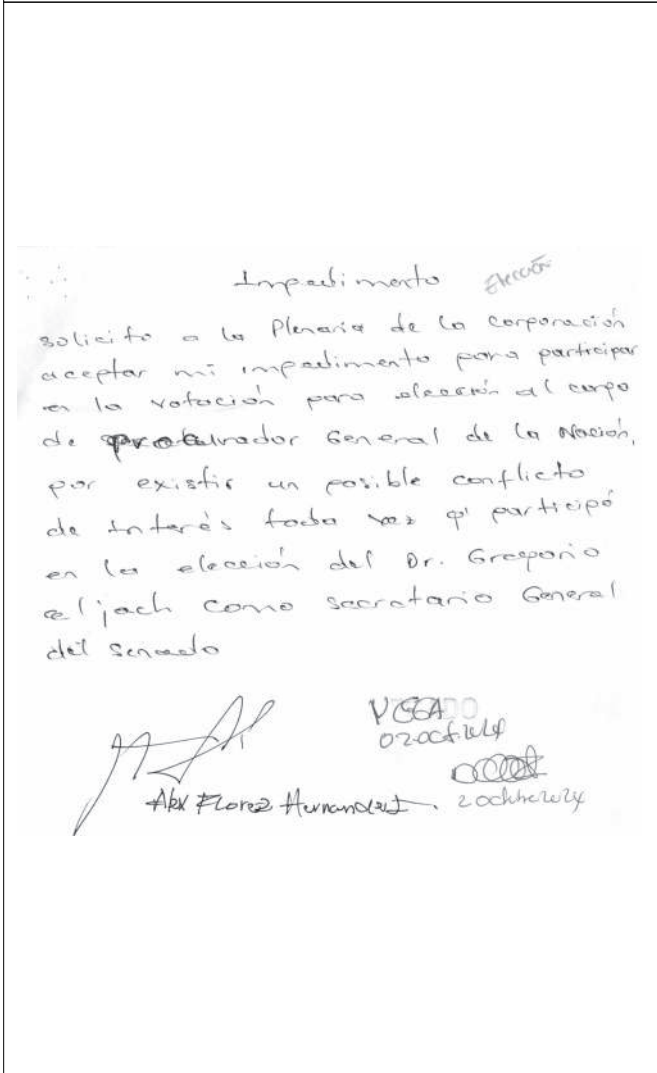 Impedimento
Elección
solicito a la Plenaria de la Corporación
aceptar mi impedimento para participar
en la votación para elección al cargo
de Procurador General de la Nación,
por existir un posible conflicto
de Interés toda vez q' participó
en la elección del Dr. Gregorio
eljach como secretario General
del Senado
02-Oct-2024
Alex Florez Hernandez
2 octubre 2024